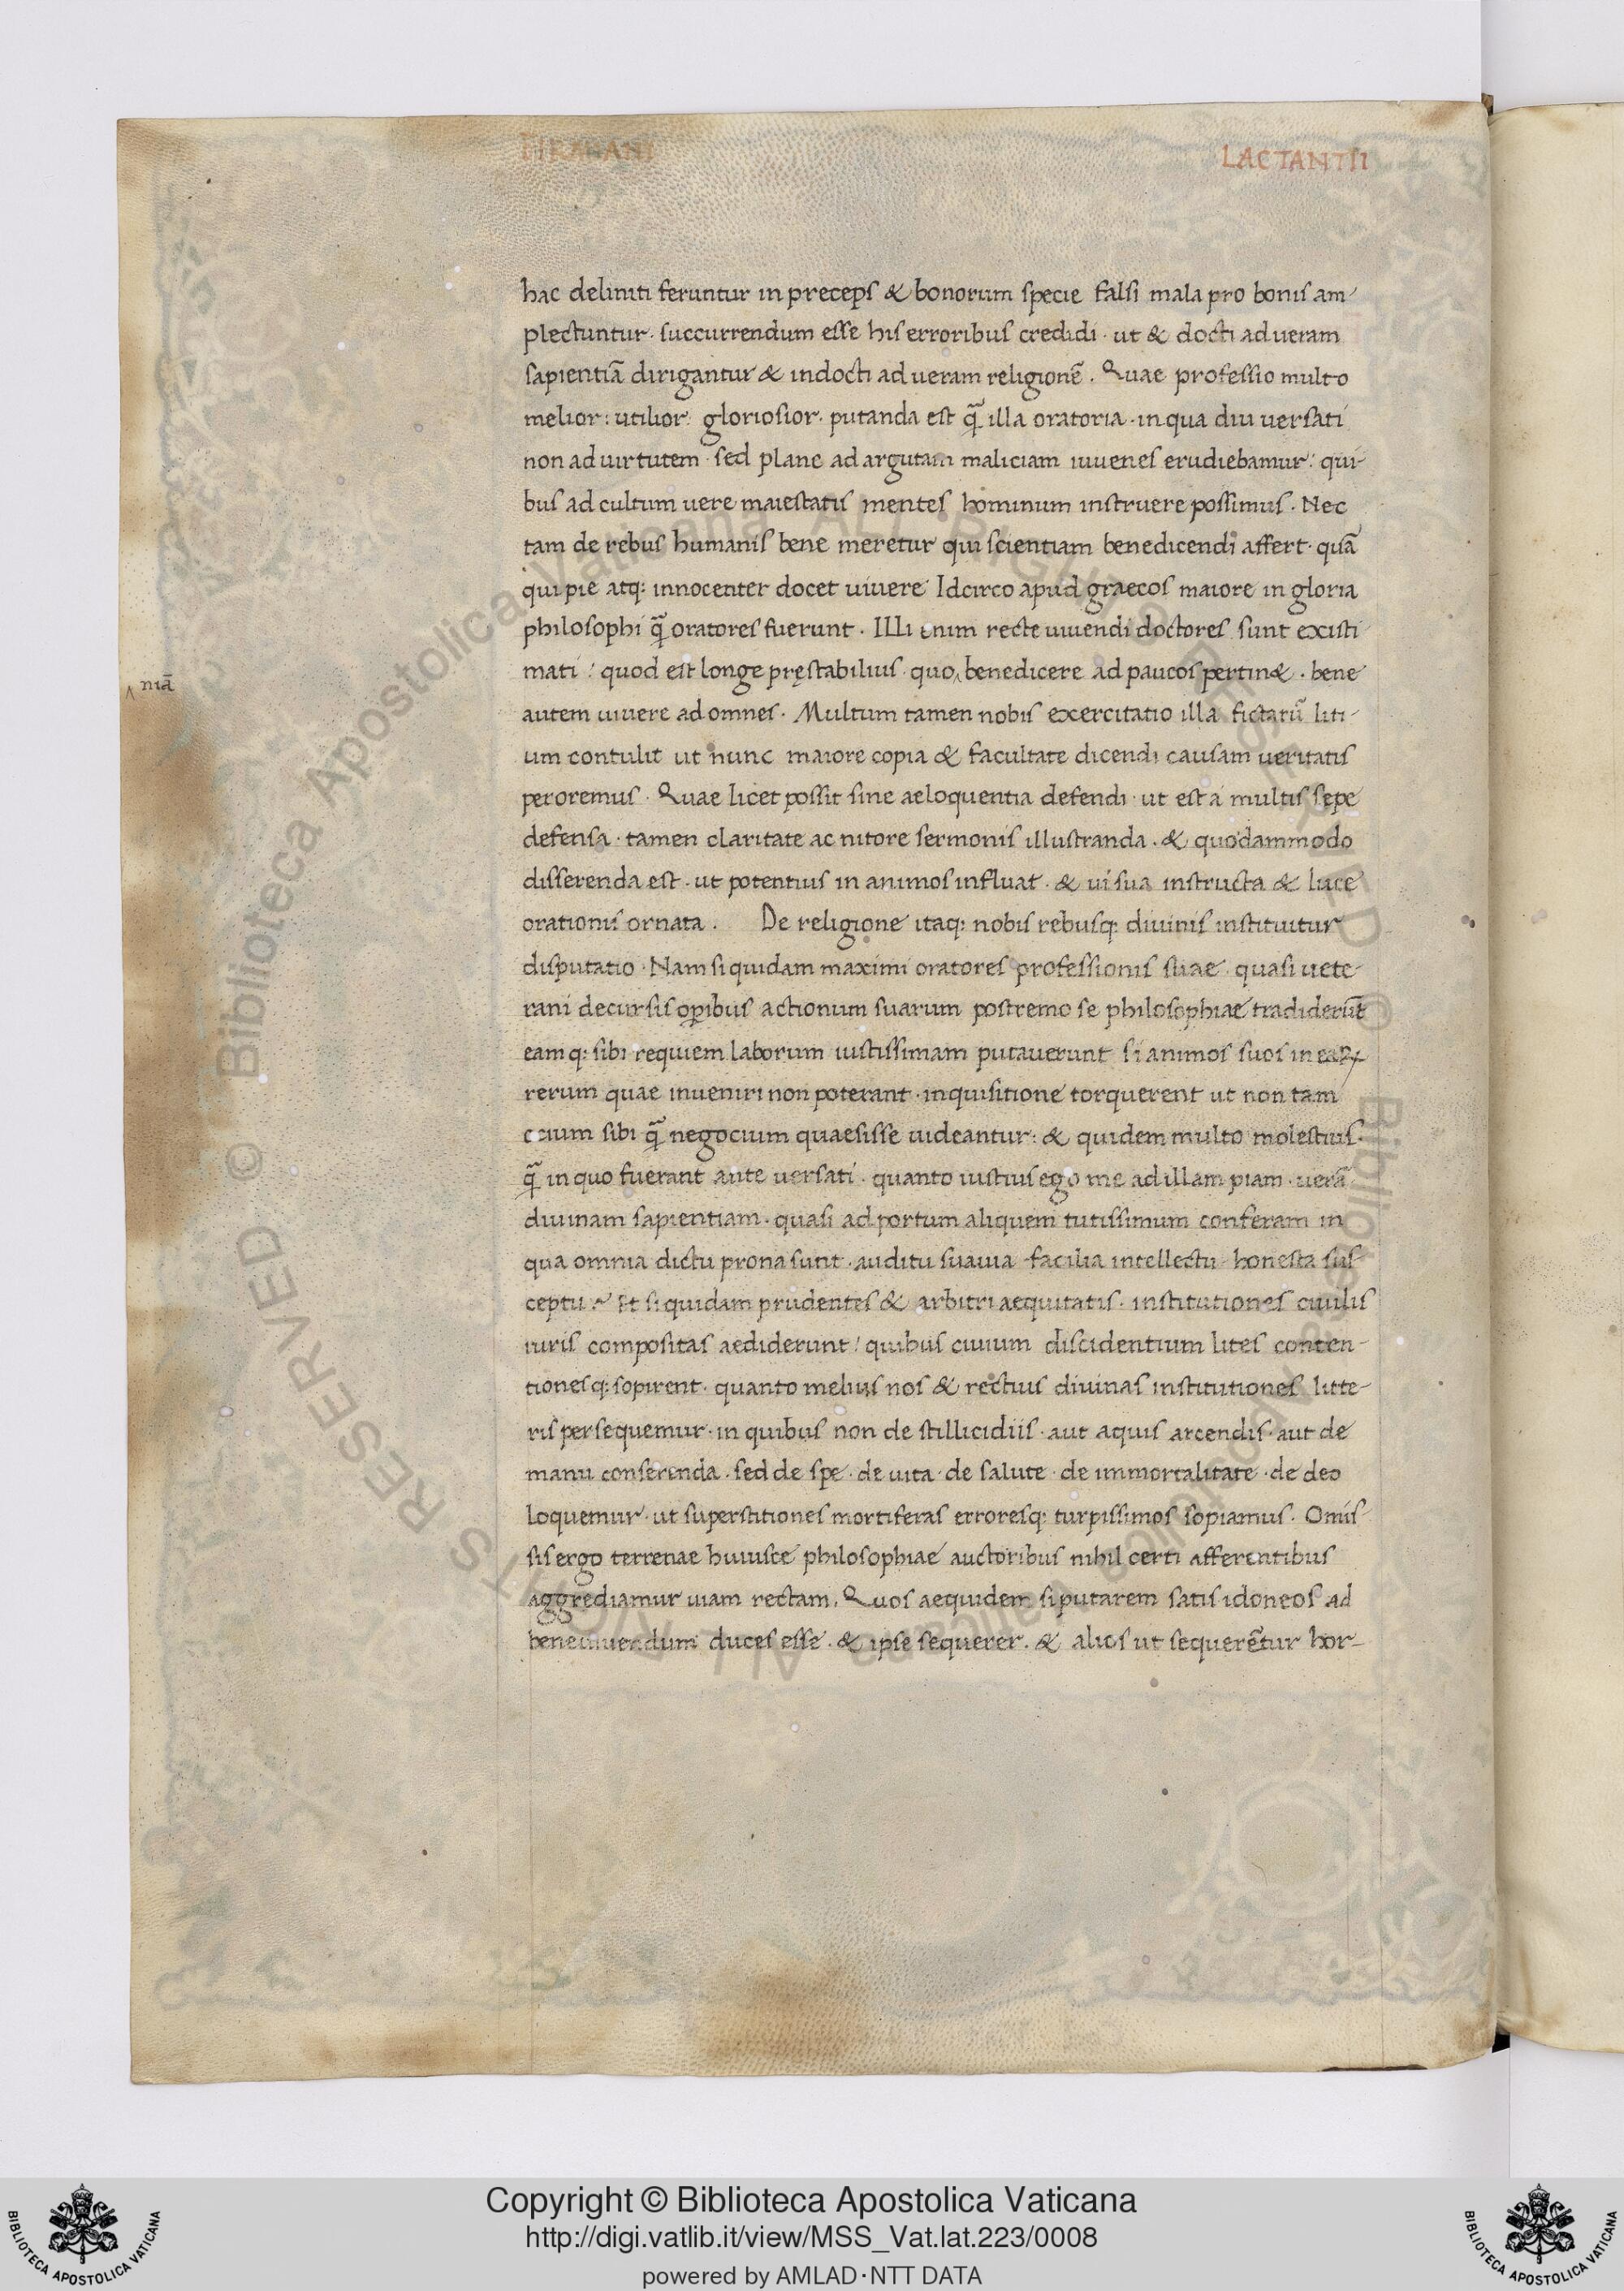 FIRMIANI LACTANTII
hac deliniti feruntur in preceps & bonorum specie falsi mala pro bonis am-
plectuntur · succurrendum esse his erroribus credidi · ut & docti ad ueram
sapientiā dirigantur & indocti ad ueram religionē . Quae professio multo
melior : utilior : gloriosior · putanda est q̄ illa oratoria · in qua diu uersati
non ad uirtutem · sed plane ad argutam maliciam iuuenes erudiebamur : qui-
bus ad cultum uere maiestatis mentes hominum instruere possimus . Nec
tam de rebus humanis bene meretur qui scientiam benedicendi affert · quā
qui pie atq: innocenter docet uiuere Idcirco apud graecos maiore in gloria
philosophi q̄ oratores fuerunt . Illi enim recte uiuendi doctores sunt existi
mati : quod est longe pręstabilius · quo‸ benedicere ad paucos pertin& . bene
‸ niā
autem uiuere ad omnes . Multum tamen nobis exercitatio illa fictarū liti-
um contulit ut nunc maiore copia & facultate dicendi causam ueritatis
peroremus . Quae licet possit sine aeloquentia defendi · ut est a multis sepe
defensa · tamen claritate ac nitore sermonis illustranda . & quodammodo
disserenda est · ut potentius in animos influat . & ui sua instructa & luce
orationis ornata . De religione itaq: nobis rebusq: diuinis instituitur
disputatio · Nam si quidam maximi oratores professionis suae · quasi uete-
rani decursis operibus actionum suarum postremo se philosophiae tradiderūt
eamq: sibi requiem laborum iustissimam putauerunt si animos suos in eaꝝ
rerum quae inueniri non poterant · inquisitione torquerent ut non tam
ocium sibi q̄ negocium quaesisse uideantur : & quidem multo molestius ·
q̄ in quo fuerant ante uersati · quanto iustius ego me ad illam piam · uerā
diuinam sapientiam · quasi ad portum aliquem tutissimum conferam in
qua omnia dictu prona sunt · auditu suauia facilia intellectu · honesta sus
ceptu . Et si quidam prudentes & arbitri aequitatis · institutiones ciuilis
iuris compositas aediderunt : quibus ciuium discidentium lites conten-
tionesq: sopirent · quanto melius nos & rectius diuinas institutiones litte-
ris persequemur · in quibus non de stillicidiis · aut aquis arcendis · aut de
manu conserenda · sed de spe · de uita · de salute · de immortalitate · de deo
loquemur · ut superstitiones mortiferas erroresq: turpissimos sopiamus . Omis-
sis ergo terrenae huiusce philosophiae auctoribus nihil certi afferentibus
aggrediamur uiam rectam . Quos aequidem si putarem satis idoneos ad
bene uiuendum duces esse . & ipse sequerer . & alios ut sequerētur hor-
Copyright © Biblioteca Apostolica Vaticana
http://digi.vatlib.it/view/MSS_Vat.lat.223/0008
powered by AMLAD·NTT DATA
BIBLIOTECA APOSTOLICA VATICANA
BIBLIOTECA APOSTOLICA VATICANA